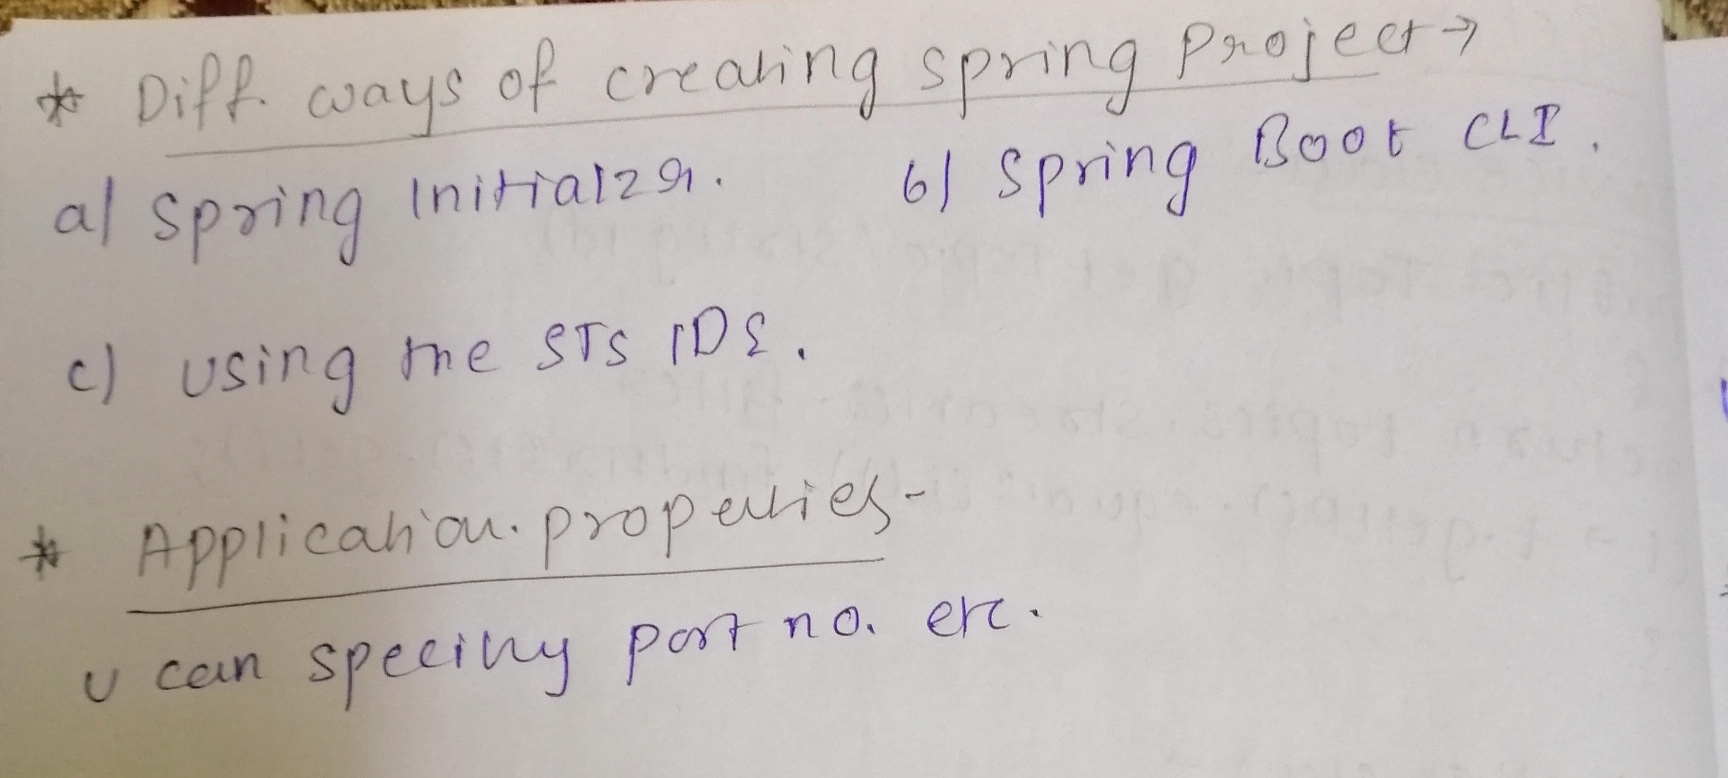 * Diff. ways of creating spring Project →
a) Spring Initialzr. b) Spring Boot CLI.
c) Using the STS IDE.
* Application.properties-
u can specify port no. etc.